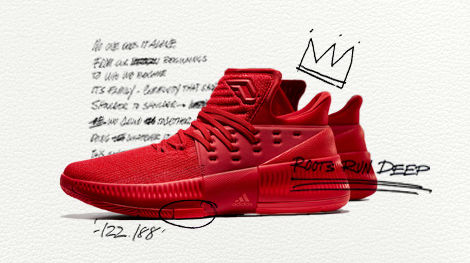 NO ONE DOES IT ALONE
FROM OUR BEGINNINGS
TO WHO WE BECOME
IT'S FAMILY -
SHOULDER TO SHOULDER
WE GRIND TOGETHER
WHATEVER IT
ROOTS RUN DEEP
adidas
-122.188-